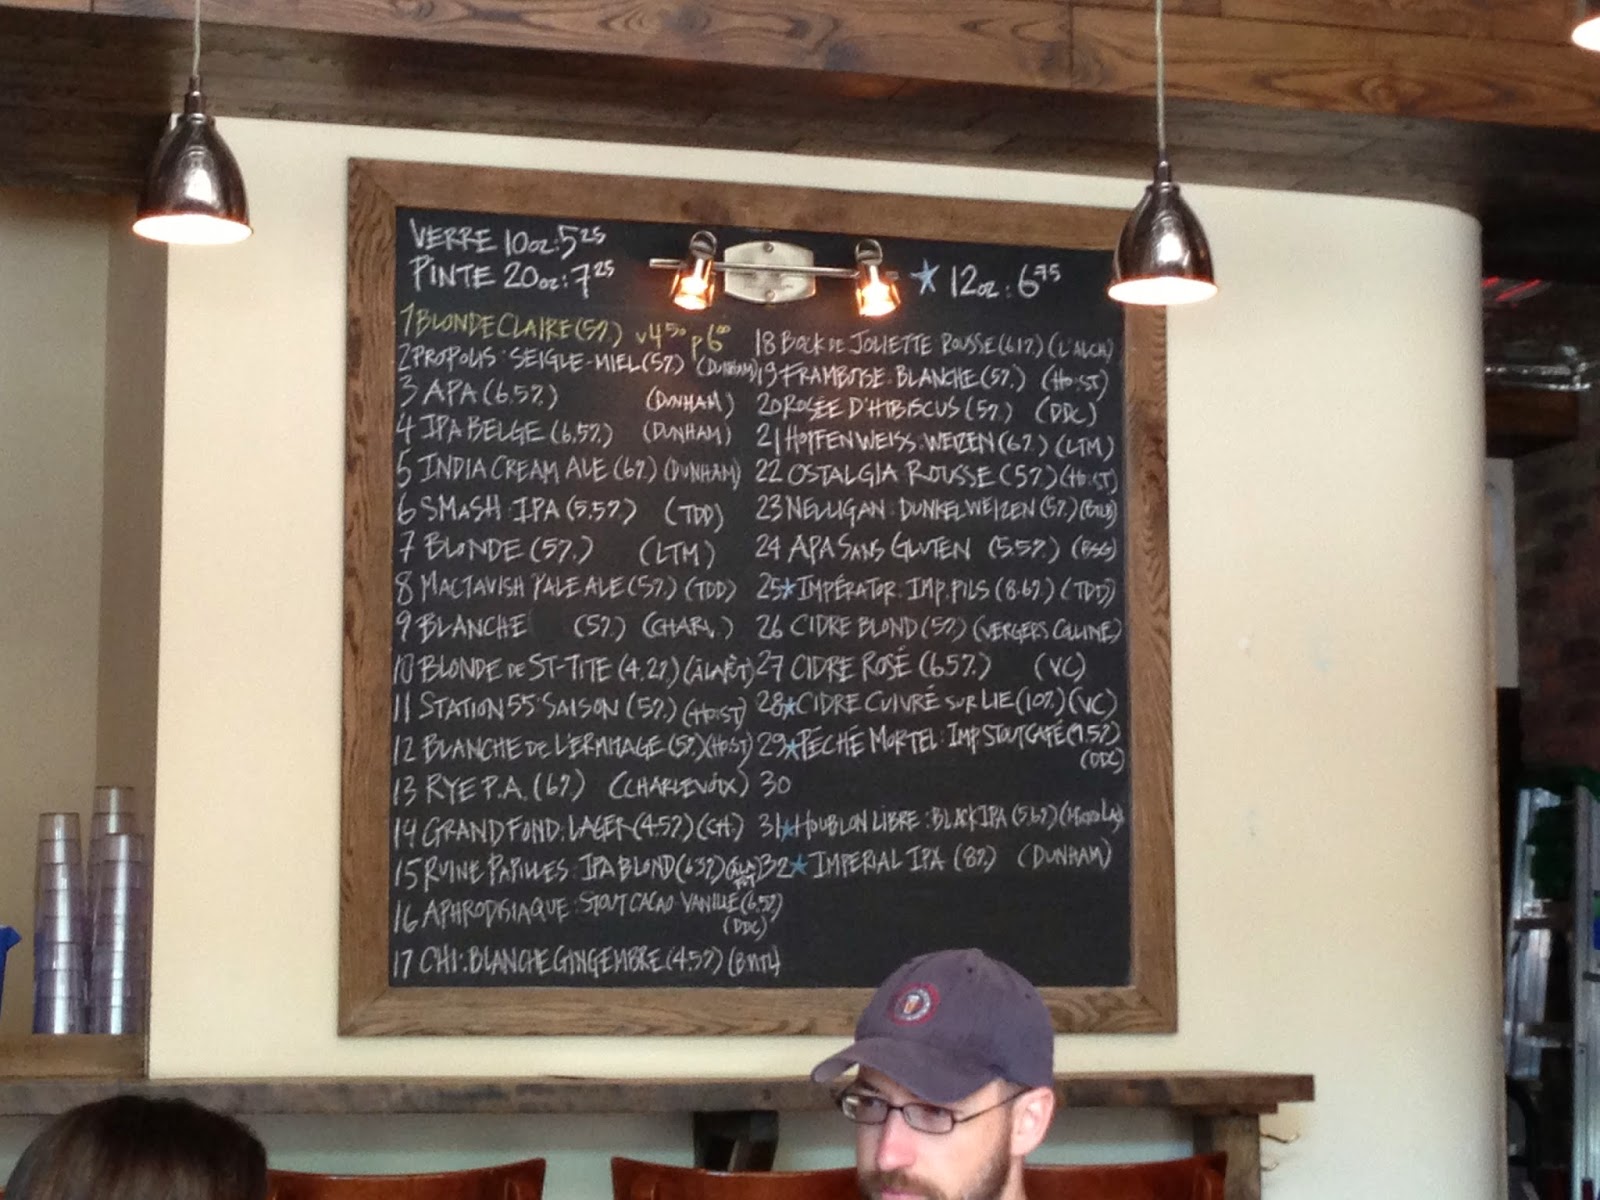 VERRE 10oz: 5 25
PINTE 20oz: 7 25
★ 12oz: 6 75
1 BLONDE CLAIRE (5%) v4 50 p6 00
2 PROPOLIS: SEIGLE-MIEL (5%) (DUNHAM)
3 APA (6.5%) (DUNHAM)
4 IPA BELGE (6.5%) (DUNHAM)
5 INDIA CREAM ALE (6%) (DUNHAM)
6 SMASH IPA (5.5%) (TDD)
7 BLONDE (5%) (LTM)
8 MACTAVISH PALE ALE (5%) (TDD)
9 BLANCHE (5%) (CHARL.)
10 BLONDE DE ST-TITE (4.2%) (ÀLAFÛT)
11 STATION 55: SAISON (5%) (HOST)
12 BLANCHE DE L'ERMITAGE (5%) (HOST)
13 RYE P.A. (6%) (CHARLEVOIX)
14 GRAND FOND: LAGER (4.5%) (CH.)
15 RUINE PAPILLES: IPA BLOND (6.3%) (ÀLA FÛT)
16 APHRODISIAQUE: STOUT CACAO VANILLE (6.5%)
(DDC)
17 CHI: BLANCHE GINGEMBRE (4.5%)
18 BOCK DE JOLIETTE ROUSSE (6.1%) (L'ALCH)
19 FRAMBOISE BLANCHE (5%) (HO:ST)
20 ROSÉE D'HIBISCUS (5%) (DDC)
21 HOPFENWEISS: WEIZEN (6%) (LTM)
22 OSTALGIA ROUSSE (5%) (HO:ST)
23 NELLIGAN: DUNKELWEIZEN (5%)
24 APA SANS GLUTEN (5.5%) (BSG)
25★ IMPÉRATOR: IMP. PILS (8.6%) (TDD)
26 CIDRE BLOND (5%) (VERGERS COLLINE)
27 CIDRE ROSÉ (6.5%) (VC)
28★ CIDRE CUIVRÉ SUR LIE (10%) (VC)
29★ PÉCHÉ MORTEL: IMP STOUT CAFÉ (9.5%)
(DDC)
30
31★ HOUBLON LIBRE: BLACK IPA (5.6%)
32★ IMPERIAL IPA (8%) (DUNHAM)